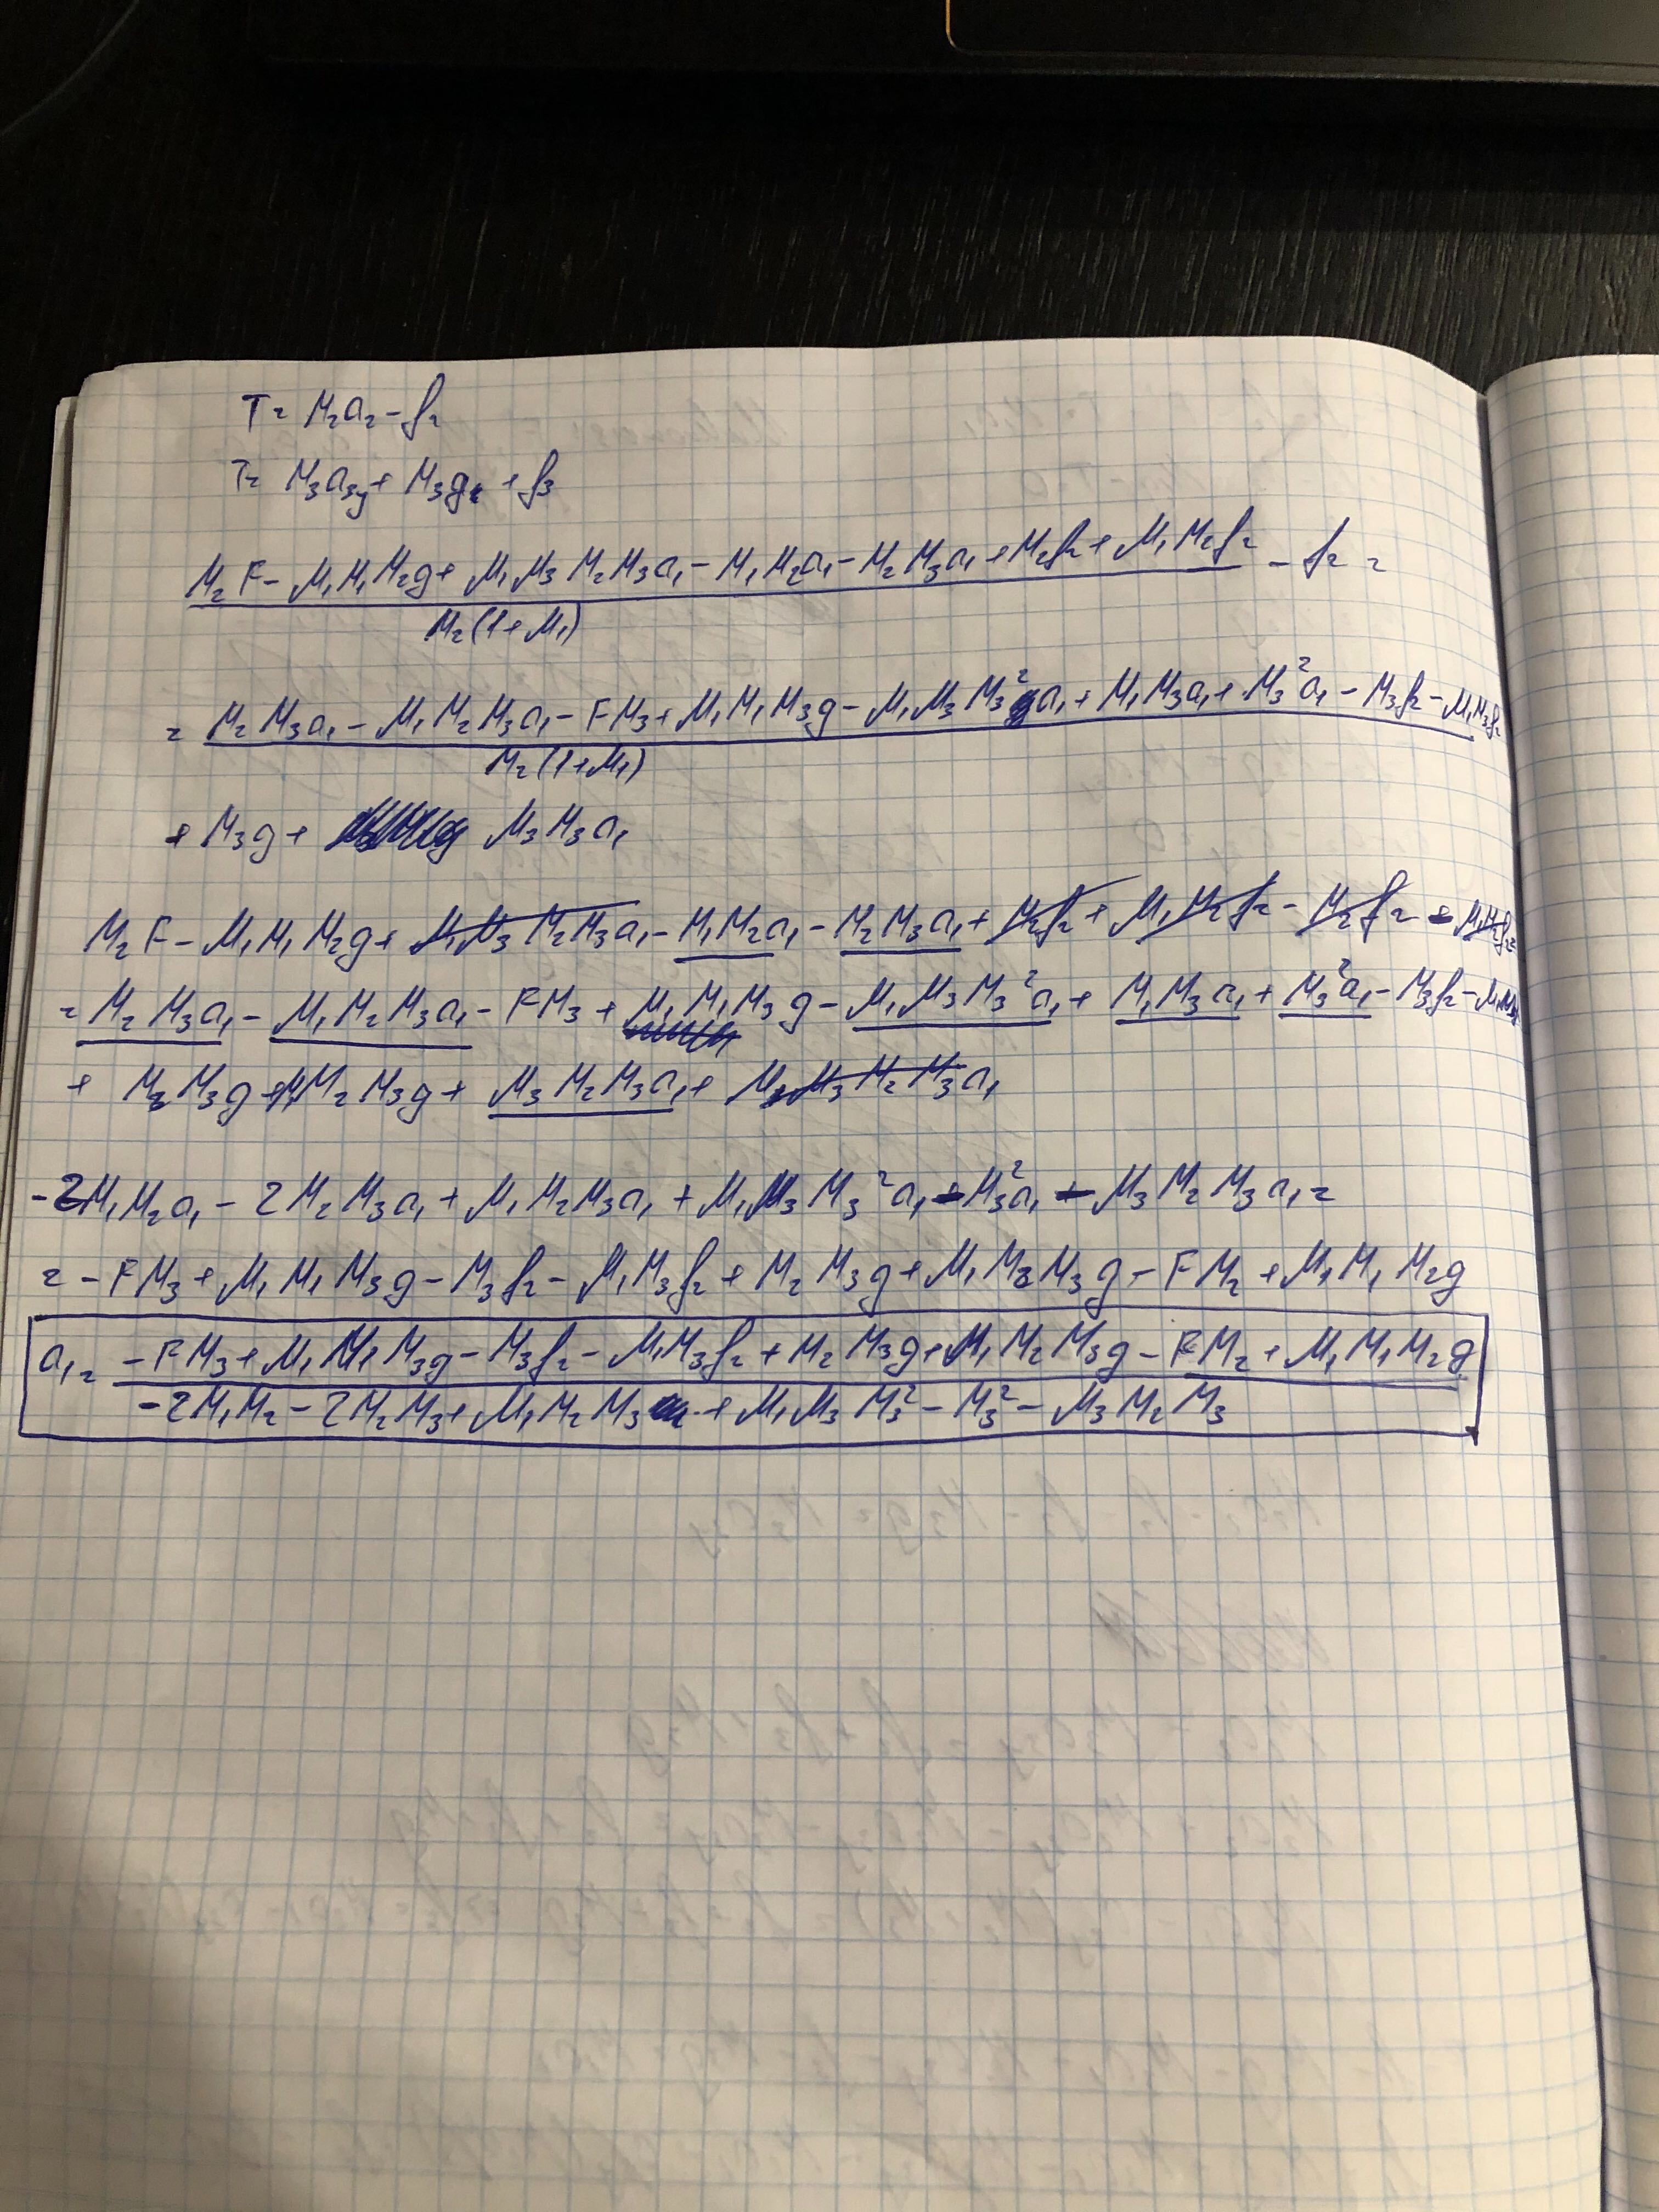 T = M₂a₂ - f₂
T = M₃a₃y + M₃g + f₃
M₂F - μ₁M₁M₂g + μ₁μ₃M₂M₃a₁ - M₁M₂a₁ - M₂M₃a₁ + M₂f₂ + μ₁M₂f₂ - f₂ =
M₂(1+μ₁)
= M₂M₃a₁ - μ₁M₂M₃a₁ - FM₃ + μ₁M₁M₃g - μ₁μ₃M₃²a₁ + M₁M₃a₁ + M₃²a₁ - M₃f₂ - μ₁M₃f₂
M₂(1+μ₁)
+ M₃g + μ₃M₃a₁
M₂F - μ₁M₁M₂g + μ₁μ₃M₂M₃a₁ - M₁M₂a₁ - M₂M₃a₁ + M₂f₂ + μ₁M₂f₂ - M₂f₂ - μ₁M₂f₂ =
= M₂M₃a₁ - μ₁M₂M₃a₁ - FM₃ + μ₁M₁M₃g - μ₁μ₃M₃²a₁ + M₁M₃a₁ + M₃²a₁ - M₃f₂ - μ₁M₃f₂
+ M₂M₃g + μ₁M₂M₃g + μ₃M₂M₃a₁ + μ₁μ₃M₂M₃a₁
-2M₁M₂a₁ - 2M₂M₃a₁ + μ₁M₂M₃a₁ + μ₁μ₃M₃²a₁ - M₃²a₁ - μ₃M₂M₃a₁ =
= -FM₃ + μ₁M₁M₃g - M₃f₂ - μ₁M₃f₂ + M₂M₃g + μ₁M₂M₃g - FM₂ + μ₁M₁M₂g
a₁ = -FM₃ + μ₁M₁M₃g - M₃f₂ - μ₁M₃f₂ + M₂M₃g + μ₁M₂M₃g - FM₂ + μ₁M₁M₂g
-2M₁M₂ - 2M₂M₃ + μ₁M₂M₃ + μ₁μ₃M₃² - M₃² - μ₃M₂M₃